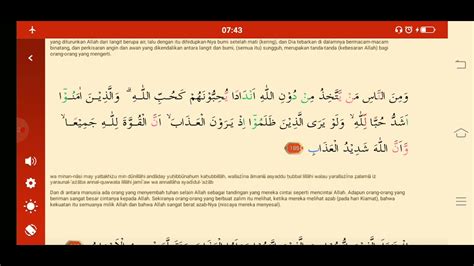 07:43
yang diturunkan Allah dari langit berupa air, lalu dengan itu dihidupkan-Nya bumi setelah mati (kering), dan Dia tebarkan di dalamnya bermacam-macam
binatang, dan perkisaran angin dan awan yang dikendalikan antara langit dan bumi, (semua itu) sungguh, merupakan tanda-tanda (kebesaran Allah) bagi
orang-orang yang mengerti.
وَمِنَ النَّاسِ مَنْ يَّتَّخِذُ مِنْ دُوْنِ اللّٰهِ اَنْدَادًا يُّحِبُّوْنَهُمْ كَحُبِّ اللّٰهِ ۗ وَالَّذِيْنَ اٰمَنُوْٓا
اَشَدُّ حُبًّا لِّلّٰهِ ۙ وَلَوْ يَرَى الَّذِيْنَ ظَلَمُوْٓا اِذْ يَرَوْنَ الْعَذَابَۙ اَنَّ الْقُوَّةَ لِلّٰهِ جَمِيْعًاۙ
وَّاَنَّ اللّٰهَ شَدِيْدُ الْعَذَابِ
wa minan-nāsi may yattakhiżu min dūnillāhi andāday yuḥibbūnahum kaḥubbillāh, wallażīna āmanū asyaddu ḥubbal lillāhi walau yarallażīna ẓalamū iż
yaraunal-'ażāba annal-quwwata lillāhi jamī'aw wa annallāha syadīdul-'ażāb
Dan di antara manusia ada orang yang menyembah tuhan selain Allah sebagai tandingan yang mereka cintai seperti mencintai Allah. Adapun orang-orang yang
beriman sangat besar cintanya kepada Allah. Sekiranya orang-orang yang berbuat zalim itu melihat, ketika mereka melihat azab (pada hari Kiamat), bahwa
kekuatan itu semuanya milik Allah dan bahwa Allah sangat berat azab-Nya (niscaya mereka menyesal).